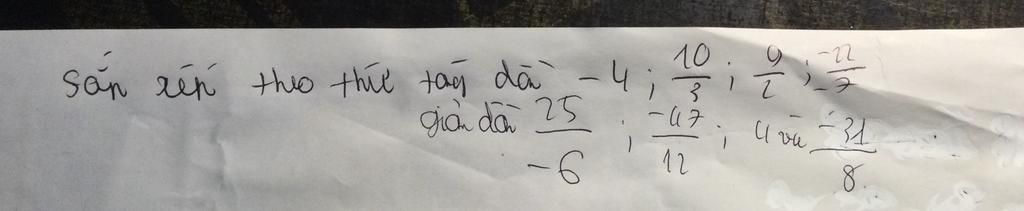 sắp xếp theo thứ tăg dần -4 ; 10/3 ; 9/2 ; -22/-7
giản dần 25/-6 ; -47/12 ; 4 và -31/8